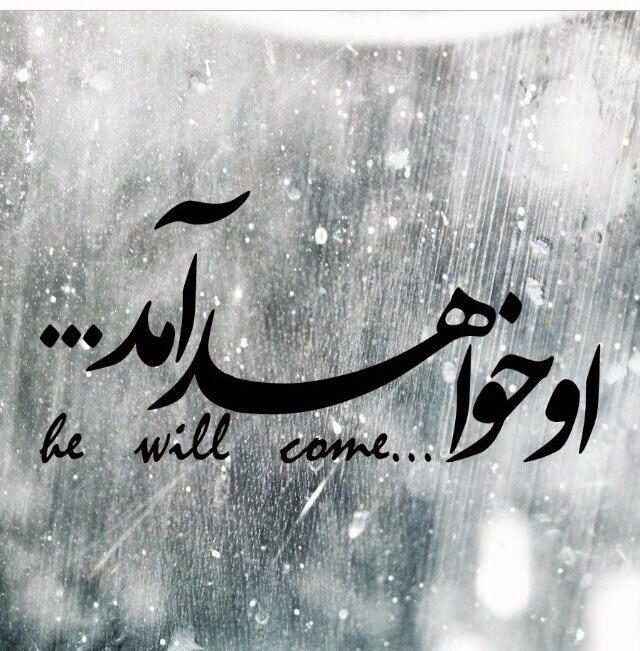 او خواهد آمد...
he will come...